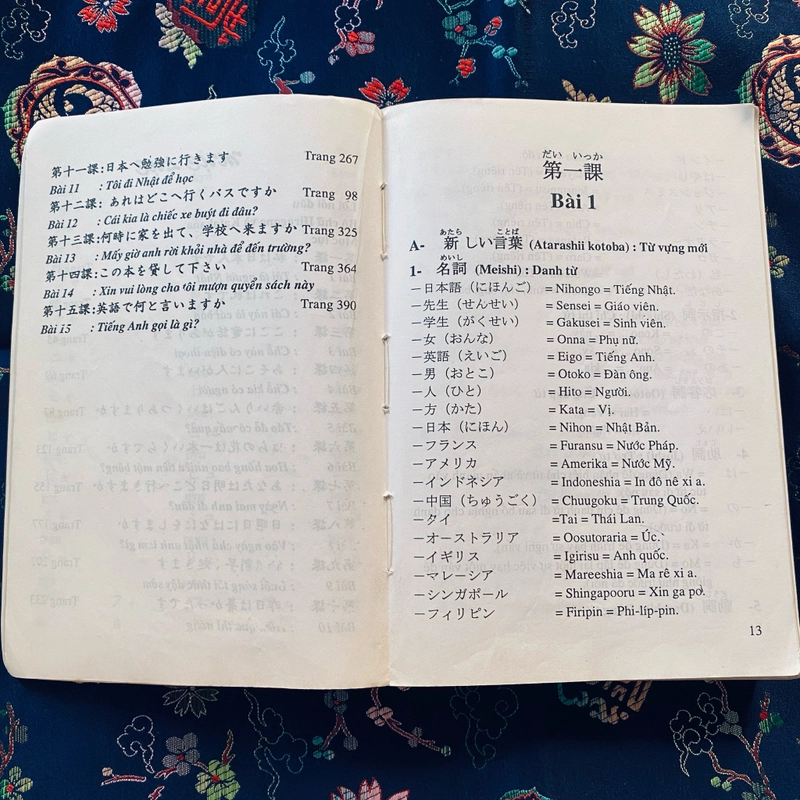 第十一課:日本へ勉強に行きます Trang 267
Bài 11 : Tôi đi Nhật để học
第十二課: あれはどこへ行くバスですか Trang 98
Bài 12 : Cái kia là chiếc xe buýt đi đâu?
第十三課:何時に家を出て、学校へ来ますか Trang 325
Bài 13 : Mấy giờ anh rời khỏi nhà để đến trường?
第十四課:この本を貸して下さい Trang 364
Bài 14 : Xin vui lòng cho tôi mượn quyển sách này
第十五課:英語で何と言いますか Trang 390
Bài i5 : Tiếng Anh gọi là gì?
だい いっか
第一課
Bài 1
あたら ことば
A- 新しい言葉 (Atarashii kotoba) : Từ vựng mới
めいし
1- 名詞 (Meishi) : Danh từ
－日本語（にほんご） = Nihongo = Tiếng Nhật.
－先生（せんせい） = Sensei = Giáo viên.
－学生（がくせい） = Gakusei = Sinh viên.
－女（おんな） = Onna = Phụ nữ.
－英語（えいご） = Eigo = Tiếng Anh.
－男（おとこ） = Otoko = Đàn ông.
－人（ひと） = Hito = Người.
－方（かた） = Kata = Vị.
－日本（にほん） = Nihon = Nhật Bản.
－フランス = Furansu = Nước Pháp.
－アメリカ = Amerika = Nước Mỹ.
－インドネシア = Indoneshia = In đô nê xi a.
－中国（ちゅうごく） = Chuugoku = Trung Quốc.
－タイ =Tai = Thái Lan.
－オーストラリア = Oosutoraria = Úc.
－イギリス = Igirisu = Anh quốc.
－マレーシア = Mareeshia = Ma rê xi a.
－シンガポール = Shingapooru = Xin ga pơ.
－フィリピン = Firipin = Phi-líp-pin.
13